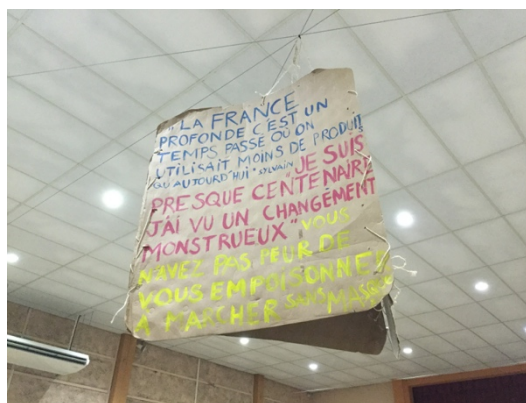 "LA FRANCE
PROFONDE C'EST UN
TEMPS PASSÉ OÙ ON
UTILISAIT MOINS DE PRODUIT
QU'AUJOURD'HUI" SYLVAIN "JE SUIS
PRESQUE CENTENAIRE
J'AI VU UN CHANGEMENT
MONSTRUEUX" "VOUS
N'AVEZ PAS PEUR DE
VOUS EMPOISONNER
À MARCHER SANS MASQUE